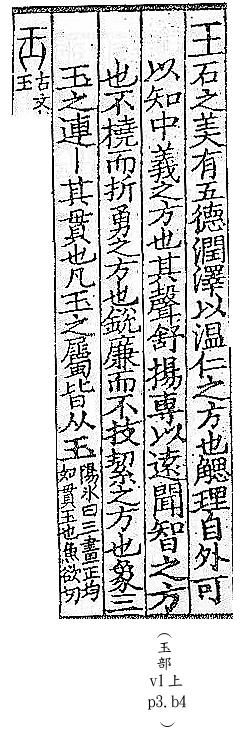 王石之美有五德潤澤以温仁之方也䚡理自外可
以知中義之方也其聲舒揚專以遠聞智之方
也不橈而折勇之方也銳廉而不技絜之方也象三
玉之連丨其貫也凡玉之屬皆从玉陽冰曰三畫正均
如貫玉也魚欲切
古文
玉
（玉部
v1上
p3.b4
）